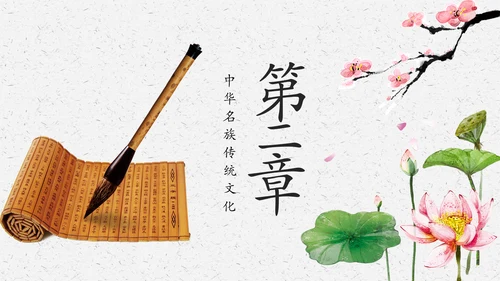 第二章
中华名族传统文化